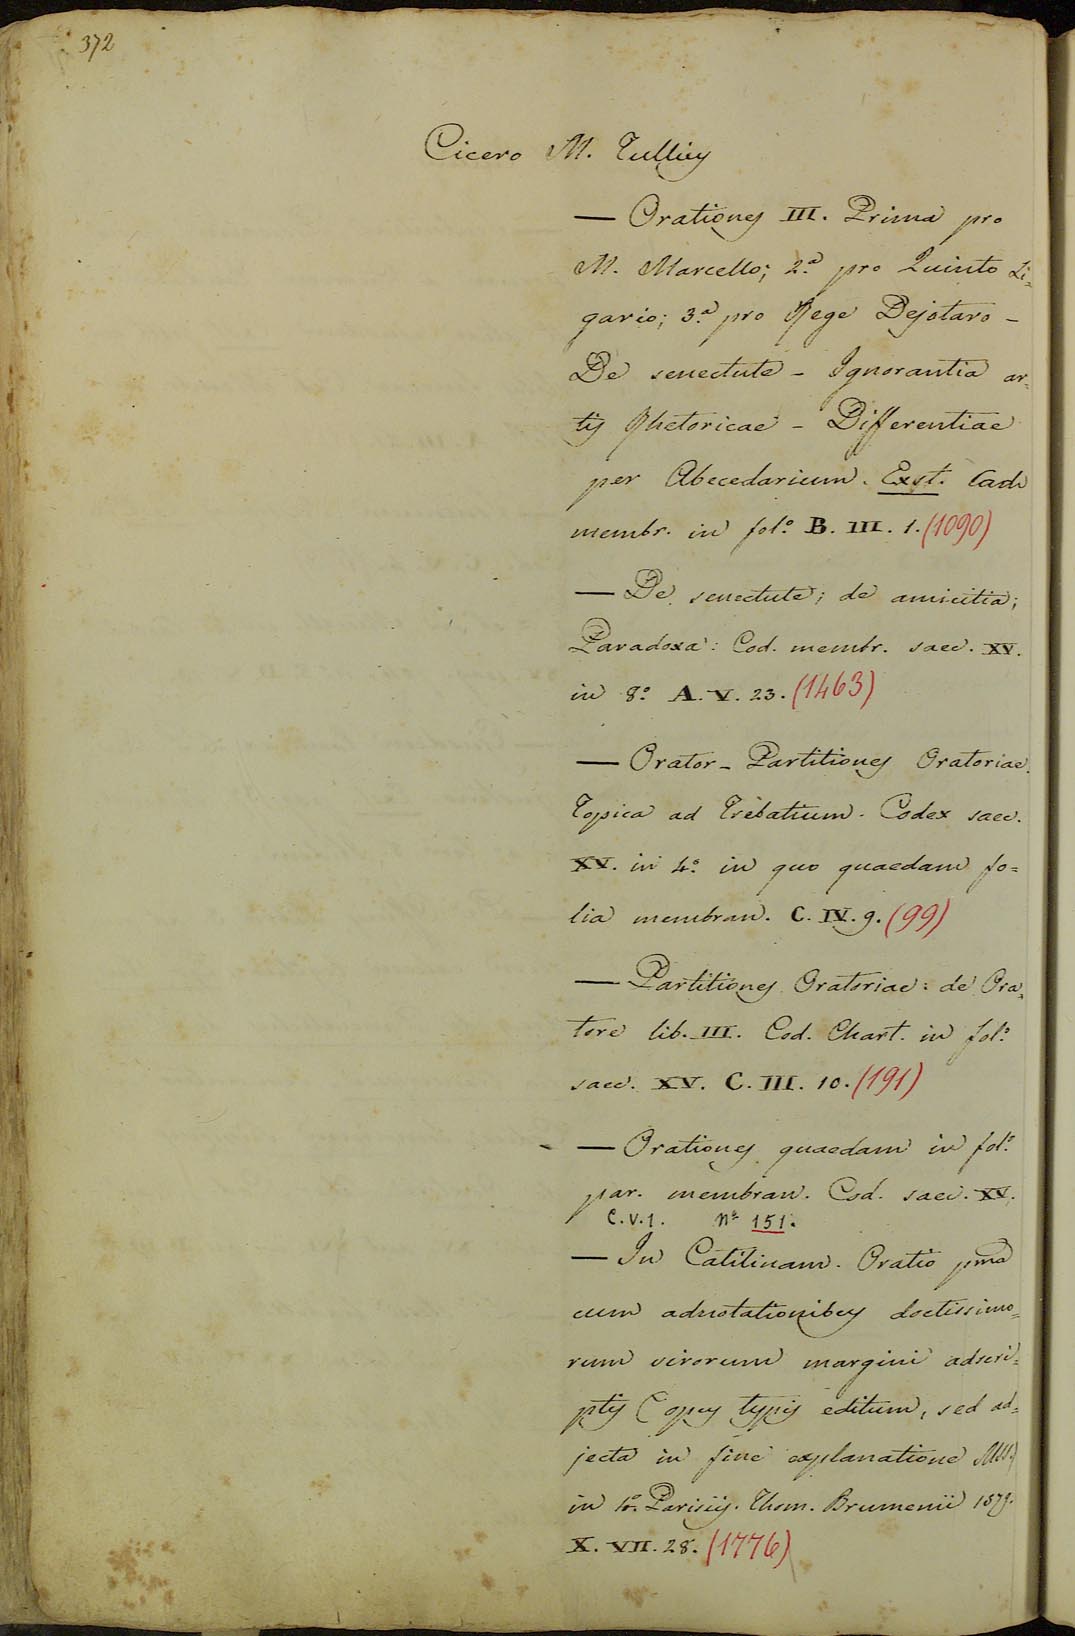 372
Cicero M. Tullius
— Orationes III. Prima pro
M. Marcello; 2.a pro Quinto Li=
gario; 3.a pro Rege Dejotaro –
De senectute – Ignorantia ar=
tis Rhetoricae – Differentiae
per Abecedarium. Exst. Cod.
membr. in fol.o B. III. 1. (1090)
— De senectute; de amicitia;
Paradoxa: Cod. membr. saec. XV.
in 8.o A. V. 23. (1463)
— Orator – Partitiones Oratoriae.
Topica ad Trebatium. Codex saec.
XV. in 4.o in quo quaedam fo=
lia membran. C. IV. 9. (99)
— Partitiones Oratoriae: de Ora=
tore lib. III. Cod. Chart. in fol.o
saec. XV. C. III. 10. (191)
— Orationes quaedam in fol.o
par. membran. Cod. saec. XV.
C. V. 1. No 151.
— In Catilinam. Oratio pma
cum adnotationibus doctissimo=
rum virorum margini adscri=
ptis (opus typis editum, sed ad=
jecta in fine explanatione Mss)
in 4.o Parisiis. Thom. Brumenii 1579.
X. VII. 28. (1776)